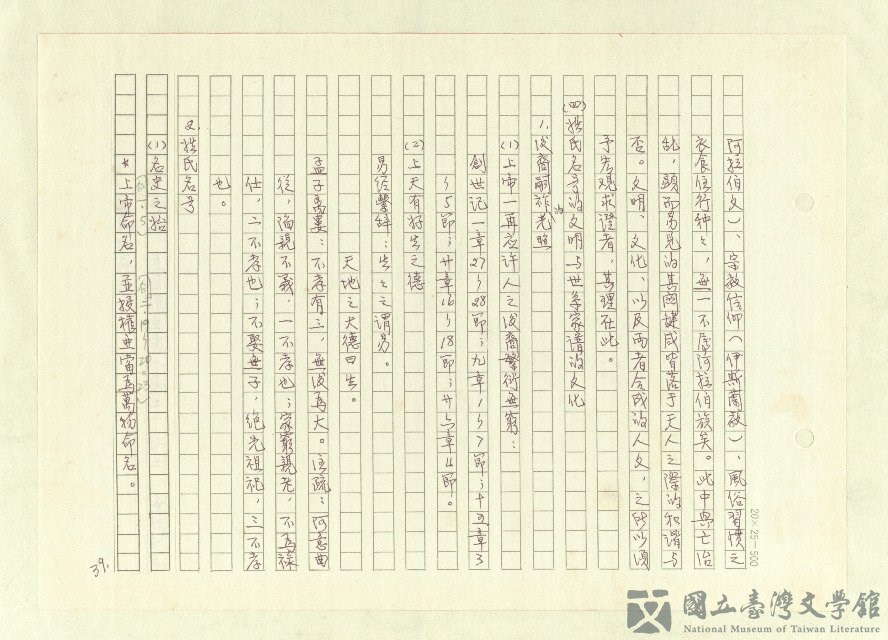 阿拉伯文)、宗教信仰(伊斯蘭教)、風俗習慣之
衣食住行種々,每一不屬阿拉伯族矣。此中興亡治
亂,顯而易見的其關鍵咸皆落于天人之際的和諧與
否。文明、文化、以及兩者合成的人文,之所以須
予宏觀求證者,其理在此。
(四)姓氏名号的文明与世系家譜的文化
1.後裔嗣祚的光照
(1)上帝一再应许人之後裔繁衍無窮:
創世记一章27~28節;九章1~7節;十五章3
~5節;廿章16~18節;廿六章4節。
(2)上天有好生之德
易经繫辞:生々之謂易。
天地之大德曰生。
孟子离婁:不孝有三,無後為大。注疏:阿意曲
從,陷親不義,一不孝也;家窮親老,不為祿
仕,二不孝也;不娶無子,絕先祖祀,三不孝
也。
2.姓氏名号
(1)名史之始
(創一.5) (創二.19~20.23)
*上帝命名,並授權亞當為萬物命名。
39.
20×25=500
國立臺灣文學館
National Museum of Taiwan Literature